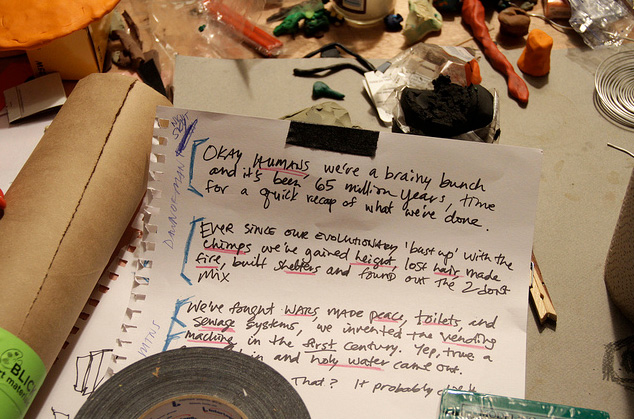 OKAY HUMANS, we're a brainy bunch
and it's been 65 million years, time
for a quick recap of what we've done.
EVER SINCE OUR EVOLUTIONARY 'bust up' with the
chimps we've gained height, lost hair, made
fire, built shelters and found out the 2 don't
mix
We've fought WARS, made peace, toilets, and
sewage systems, we invented the vending
machine, in the first century. Yep, true a
coin in and holy water came out.
That? It probably
MTNS
BLIC